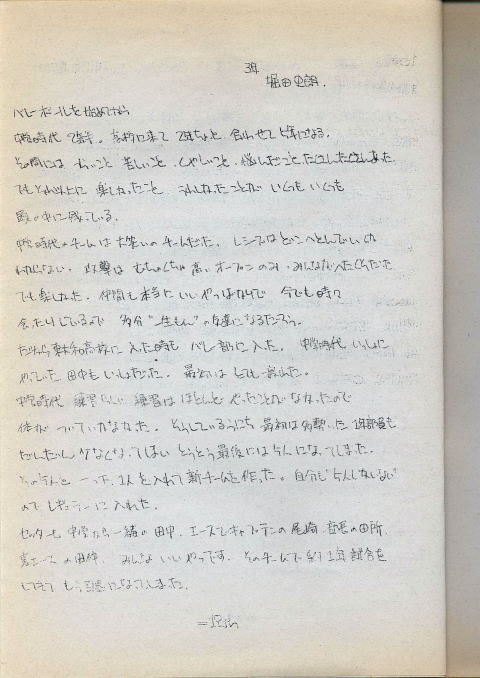 3年
堀田史朗.
バレーボールを始めてから
中学時代 2年半。高校に来て 2年ちょっと 合わせて 5年になる。
その間には いいこと 苦しいこと くやしいこと 悩んだことたくさんたくさんあった
でもそれ以上に 楽しかったこと うれしかったことが いくつも いくつも
頭の中に残っている。
中学時代のチームは大笑いのチームだった。レシーブはどこへとんでいくか
わからない 攻撃は むちゃくちゃ高いオープンのみ みんなが
でも楽しかった。仲間も本当に いいやつばかりで 今でも時々
会ったりしているので 多分"一生もん"の友達になるだろう。
だから 高校に入った時も バレー部に入った。中学時代 いっしょに
やっていた 田中もいっしょだった。最初は とても
中学時代 練習らしい 練習は ほとんど やったことがなかったので
体が ついていかなかった。そうしているうちに 最初は多勢いた 1年部員も
だんだん少なくなってしまい とうとう最後には5人になってしまった。
その5人と 1人を入れて新チームを作った。自分も"5人しかいない"
ので レギュラーに入れた。
セッターも 中学から一緒の田中、エースでキャプテンの尾崎 の田所、
裏エースの みんな いいやつです。そのチームで 約1年試合を
してきて もう引退になってしまった.